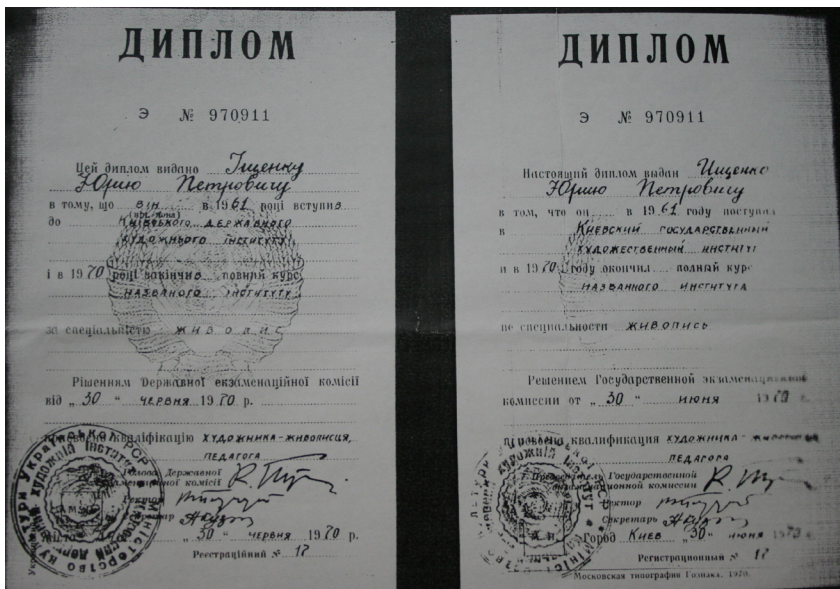 ДИПЛОМ
Э № 970911
Цей диплом видано Іщенку
Юрію Петровичу
в тому, що він в 1961 році вступив
до Київського державного
художнього інституту
і в 1970 році закінчив повний курс
названого інституту
за спеціальністю живопис
Рішенням Державної екзаменаційної комісії
від „30“ червня 1970 р.
кваліфікацію художника-живописця,
педагога
Голова Державної
екзаменаційної комісії
Ректор
„30“ червня 1970 р.
Реєстраційний № 12
ДИПЛОМ
Э № 970911
Настоящий диплом выдан Ищенко
Юрию Петровичу
в том, что он в 1961 году поступил
в Киевский государственный
художественный институт
и в 1970 году окончил полный курс
названного института
по специальности живопись
Решением Государственной экзаменационной
комиссии от „30“ июня 1970 г.
присвоена квалификация художника-живописца
педагога
Председатель Государственной
экзаменационной комиссии
Ректор
Секретарь
Город Киев „30“ июня 1970 г.
Регистрационный № 12
Московская типография Гознака. 1970.